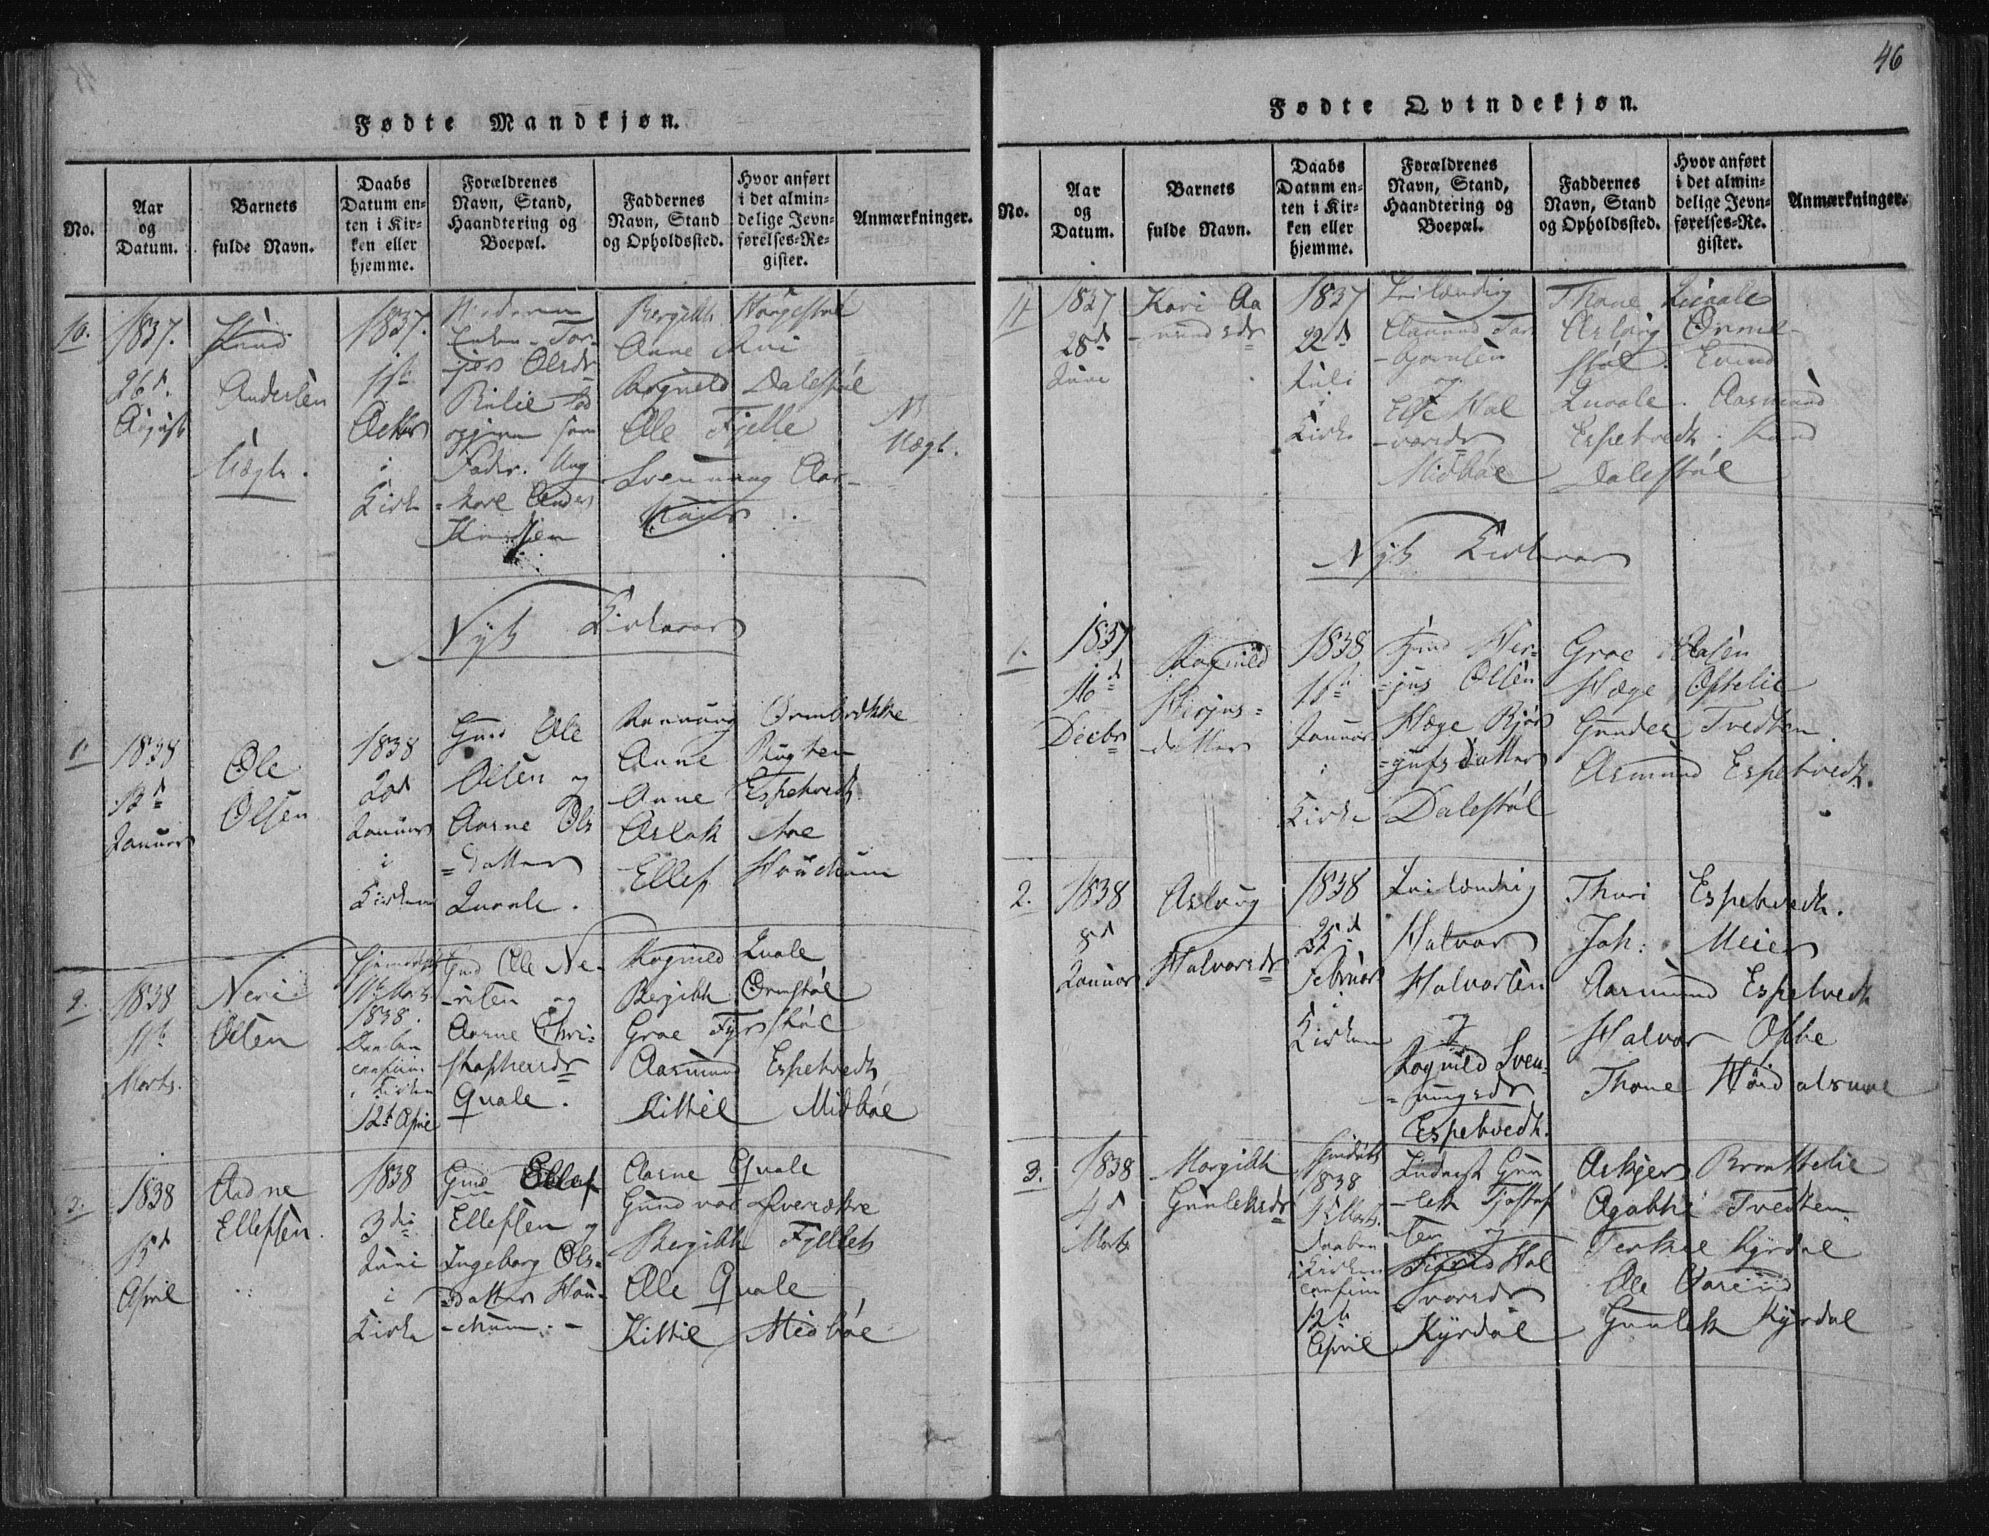 Fødte Mandkjøn.
No.
Aar
og
Datum.
Barnets
fulde Navn.
Daabs
Datum en-
ten i Kir-
ken eller
hjemme.
Forældrenes
Navn, Stand,
Haandtering og
Boepæl.
Faddernes
Navn, Stand
og Opholdssted.
Hvor anført
i det almin-
delige Jevn-
førelses-Re-
gister.
Anmærkninger.
10.
1837.
26d
August
Knud
Andersen
Uægte.
1837.
i
Kirke
Moderen
Enken Tor-
Olsdr
Fader. Ung-
karl Anders
Knutsen
Bergith Haugestøl
Anne
Rognild Dalestøl
Ole Fjelle
Svennung Aar-
NB
Uægt.
Nyt Kirkeaar
1.
1838
12d
Januar
Ole
Olsen
1838
Januar
i
Kirken
Gmd Ole
Olsen og
Aasne Ols
=datter
Quale.
Ormbrække
Anne Rugten
Anne Espetvedt
Aslak Aae
Ellef Houchum
2.
1838
11te
Marts.
Neri
Olsen
1838.
Daaben
confirm:
i Kirken
12te April
Gmd Ole Ne-
-risen og
Aasne Chri-
stophersdr
Quale.
Rognild Quale
Bergith Ormstøl
Groe Fyrstøl
Aasmund Espetvedt
Kittil Midbøe
3.
1838
15d
April
Aadne
Ellefsen.
1838
3die
Juni
i
Kirke
Gmd Ellef
Ellefsen og
Ingeborg Ols-
=datter Hou-
-chum. -
Aasne Quale
Gundvor Øverækre
Bergith Fjellet
Ole Quale
Kittil Midbøe
46
Fødte Qvindekjøn.
No.
Aar
og
Datum.
Barnets
fulde Navn.
Daabs
Datum en-
ten i Kir-
ken eller
hjemme.
Forældrenes
Navn, Stand,
Haandtering og
Boepæl.
Faddernes
Navn, Stand
og Opholdssted.
Hvor anført
i det almin-
delige Jevn-
førelses-Re-
gister.
Anmærkninger.
11
1837
28d
Juni
Kari Aa
-mundsdr
1837
22d
Juli
i
Kirke
Leilænding
Aamund Tor
-gjersen
og
Else Hal
-vorsdr
Midbøe
Thone Quale
Aslaug Orme-
støl. Evind
Quale. Aasmund
Espetvedt. Knud
Dalestøl
Nyt Kirkeaar
1.
1837
16d
Decbr
Rognild
Herjus-
datter
1838
1ste
Januar
i
Kirke
Gmd Her-
=jus Olsen
Hæge Bjør
=gufsdatter
Dalestøl
Groe Aasen
Hæge Optelie
Gunder Tvedten.
Asmund Espetvedt.
2.
1838
8d
Januar
Aslaug
Halvorsdr
1838
25d
Februar
i
Kirken
Leilænding
Halvor
Halvorsen
og
Rognild Sven-
=nungsdr
Espetvedt.
Thuri Espetvedt.
Joh: Meier
Aasmund Espetvedt
Halvor Opbe
Thone
3.
1838
4d
Marts
Margith
Gunleksdr
1838
Marts.
Daaben
i Kirken
confirm
12te
April
Inderst Gun
-lek Tjostof
-sen og
Sigrid Hal
-vorsdr
Kyrdal
Askjer Brattelie
Agathe Tvedten
Terkel Kyrdal
Ole
Gunlek Kyrdal